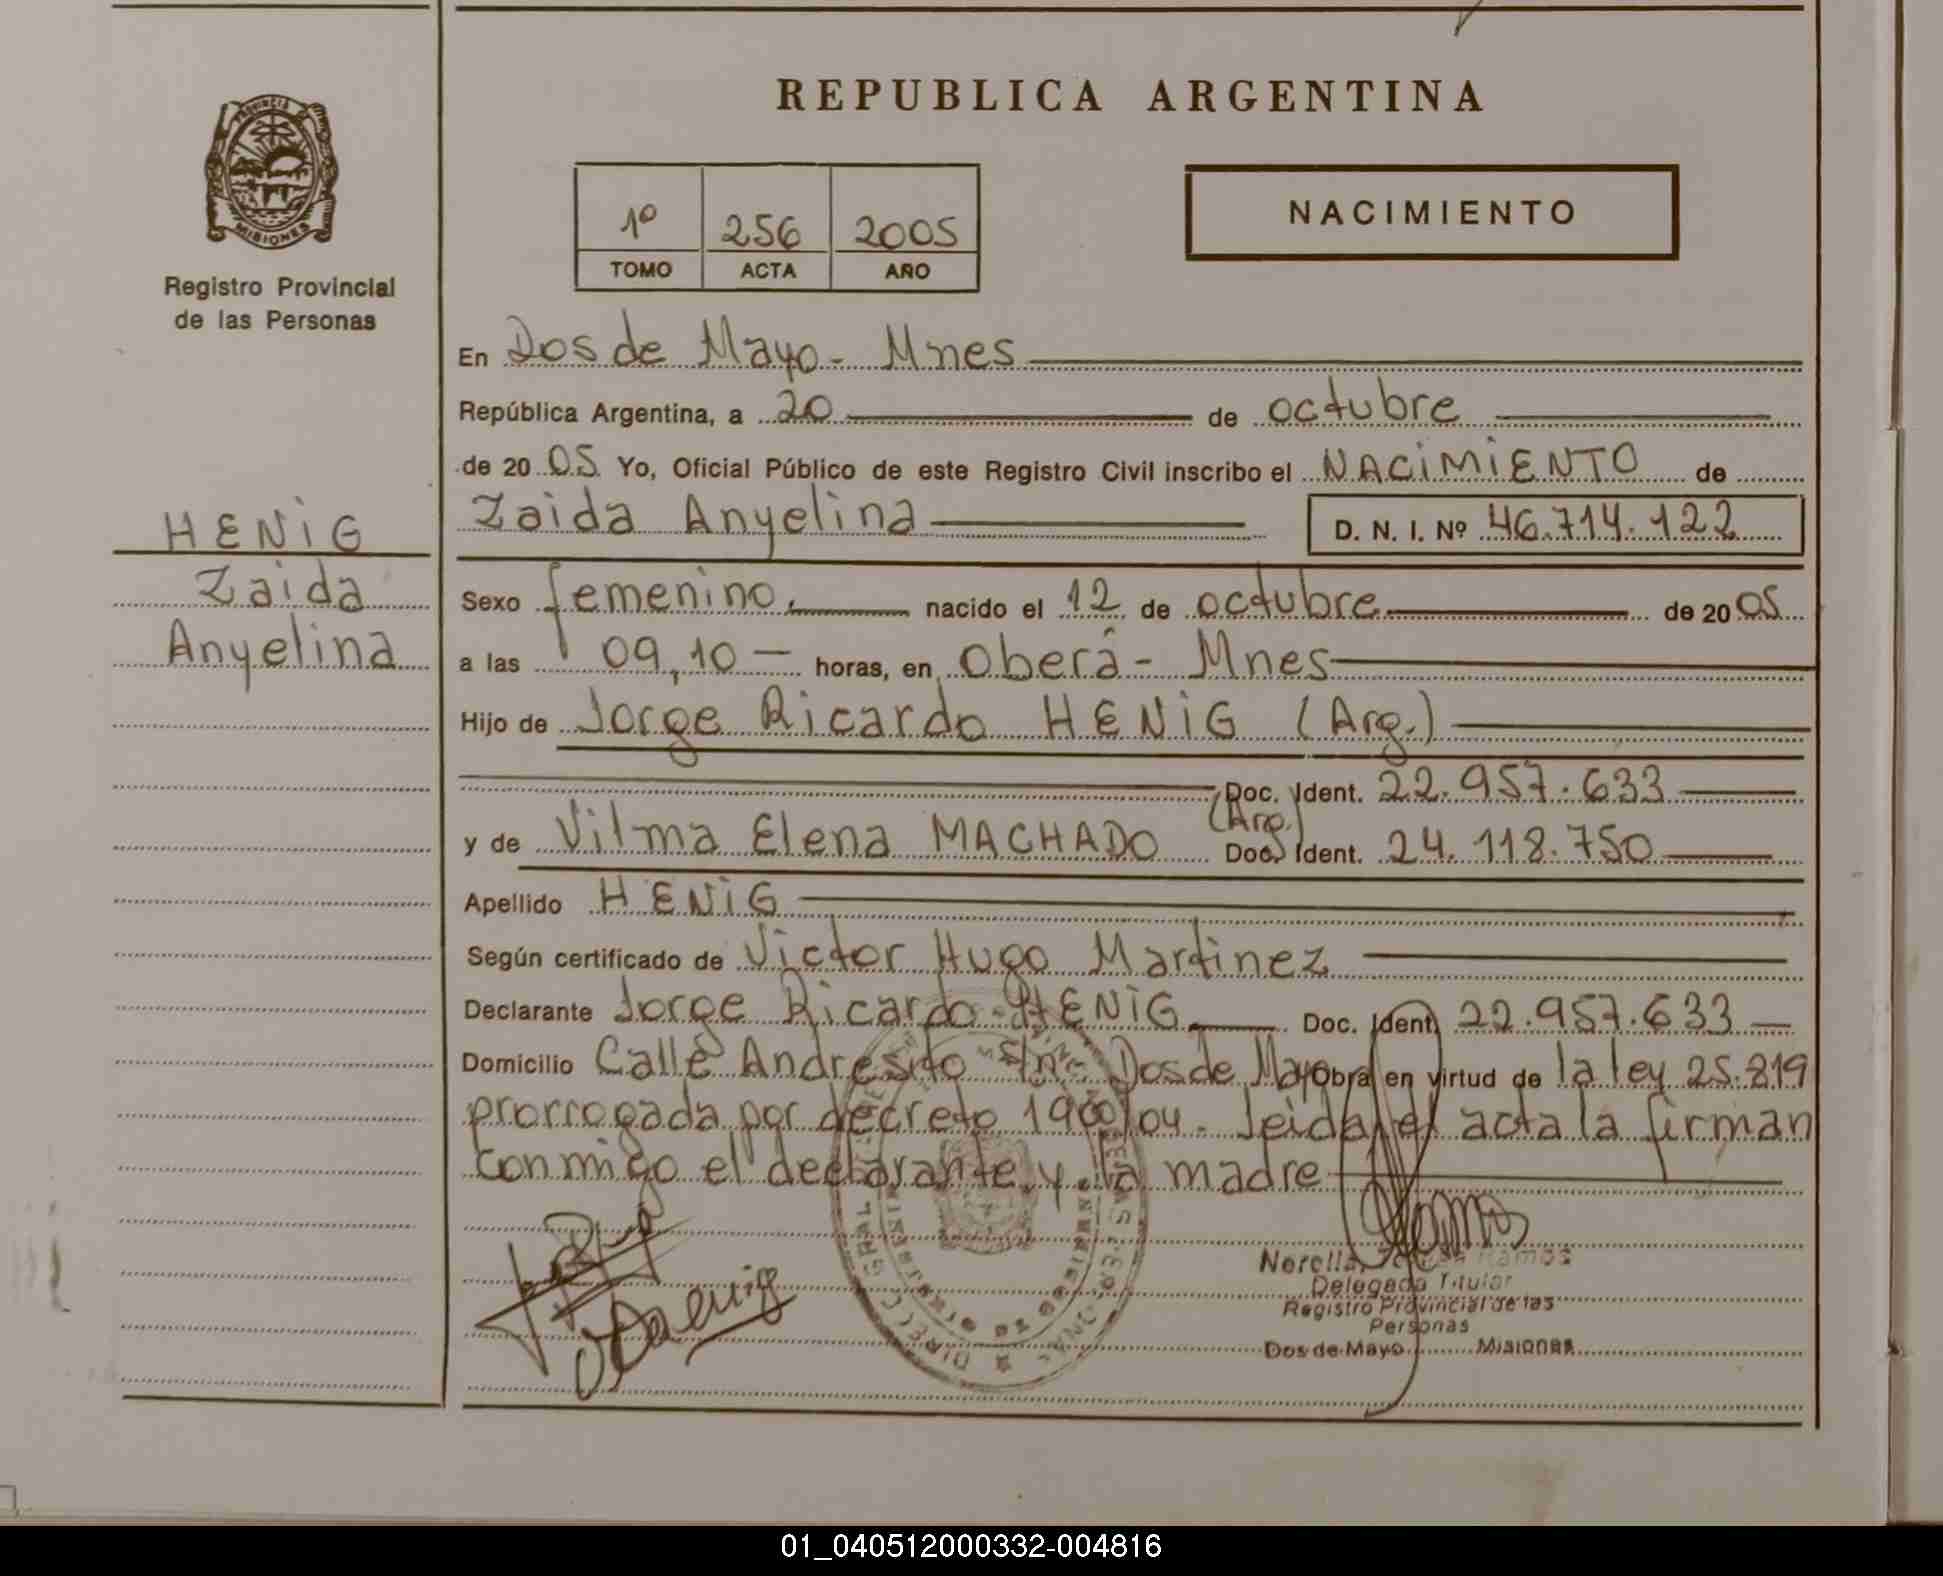 REPUBLICA ARGENTINA
PROVINCIA
MISIONES
Registro Provincial
de las Personas
1º 256 2005
TOMO ACTA AÑO
NACIMIENTO
En Dos de Mayo - Mnes
República Argentina, a 20 de octubre
de 20 05 Yo, Oficial Público de este Registro Civil inscribo el NACIMIENTO de
Zaida Anyelina D. N. I. Nº 46.714.122
HENIG
Zaida
Anyelina
Sexo femenino. nacido el 12 de octubre de 20 05
a las 09,10 — horas, en Oberá - Mnes
Hijo de Jorge Ricardo HENIG (Arg.)
Doc. Ident. 22.957.633
y de Vilma Elena MACHADO (Arg.) Doc. Ident. 24.118.750
Apellido HENIG
Según certificado de Victor Hugo Martinez
Declarante Jorge Ricardo HENIG Doc. Ident. 22.957.633
Domicilio Calle Andresito S/nº Dos de Mayo Obra en virtud de la ley 25.819
prorrogada por decreto 1900/04. Leida el acta la firman
conmigo el declarante y la madre
Ramos
Delegada Titular
Registro Provincial de las
Personas
Dos de Mayo Misiones
01_040512000332-004816